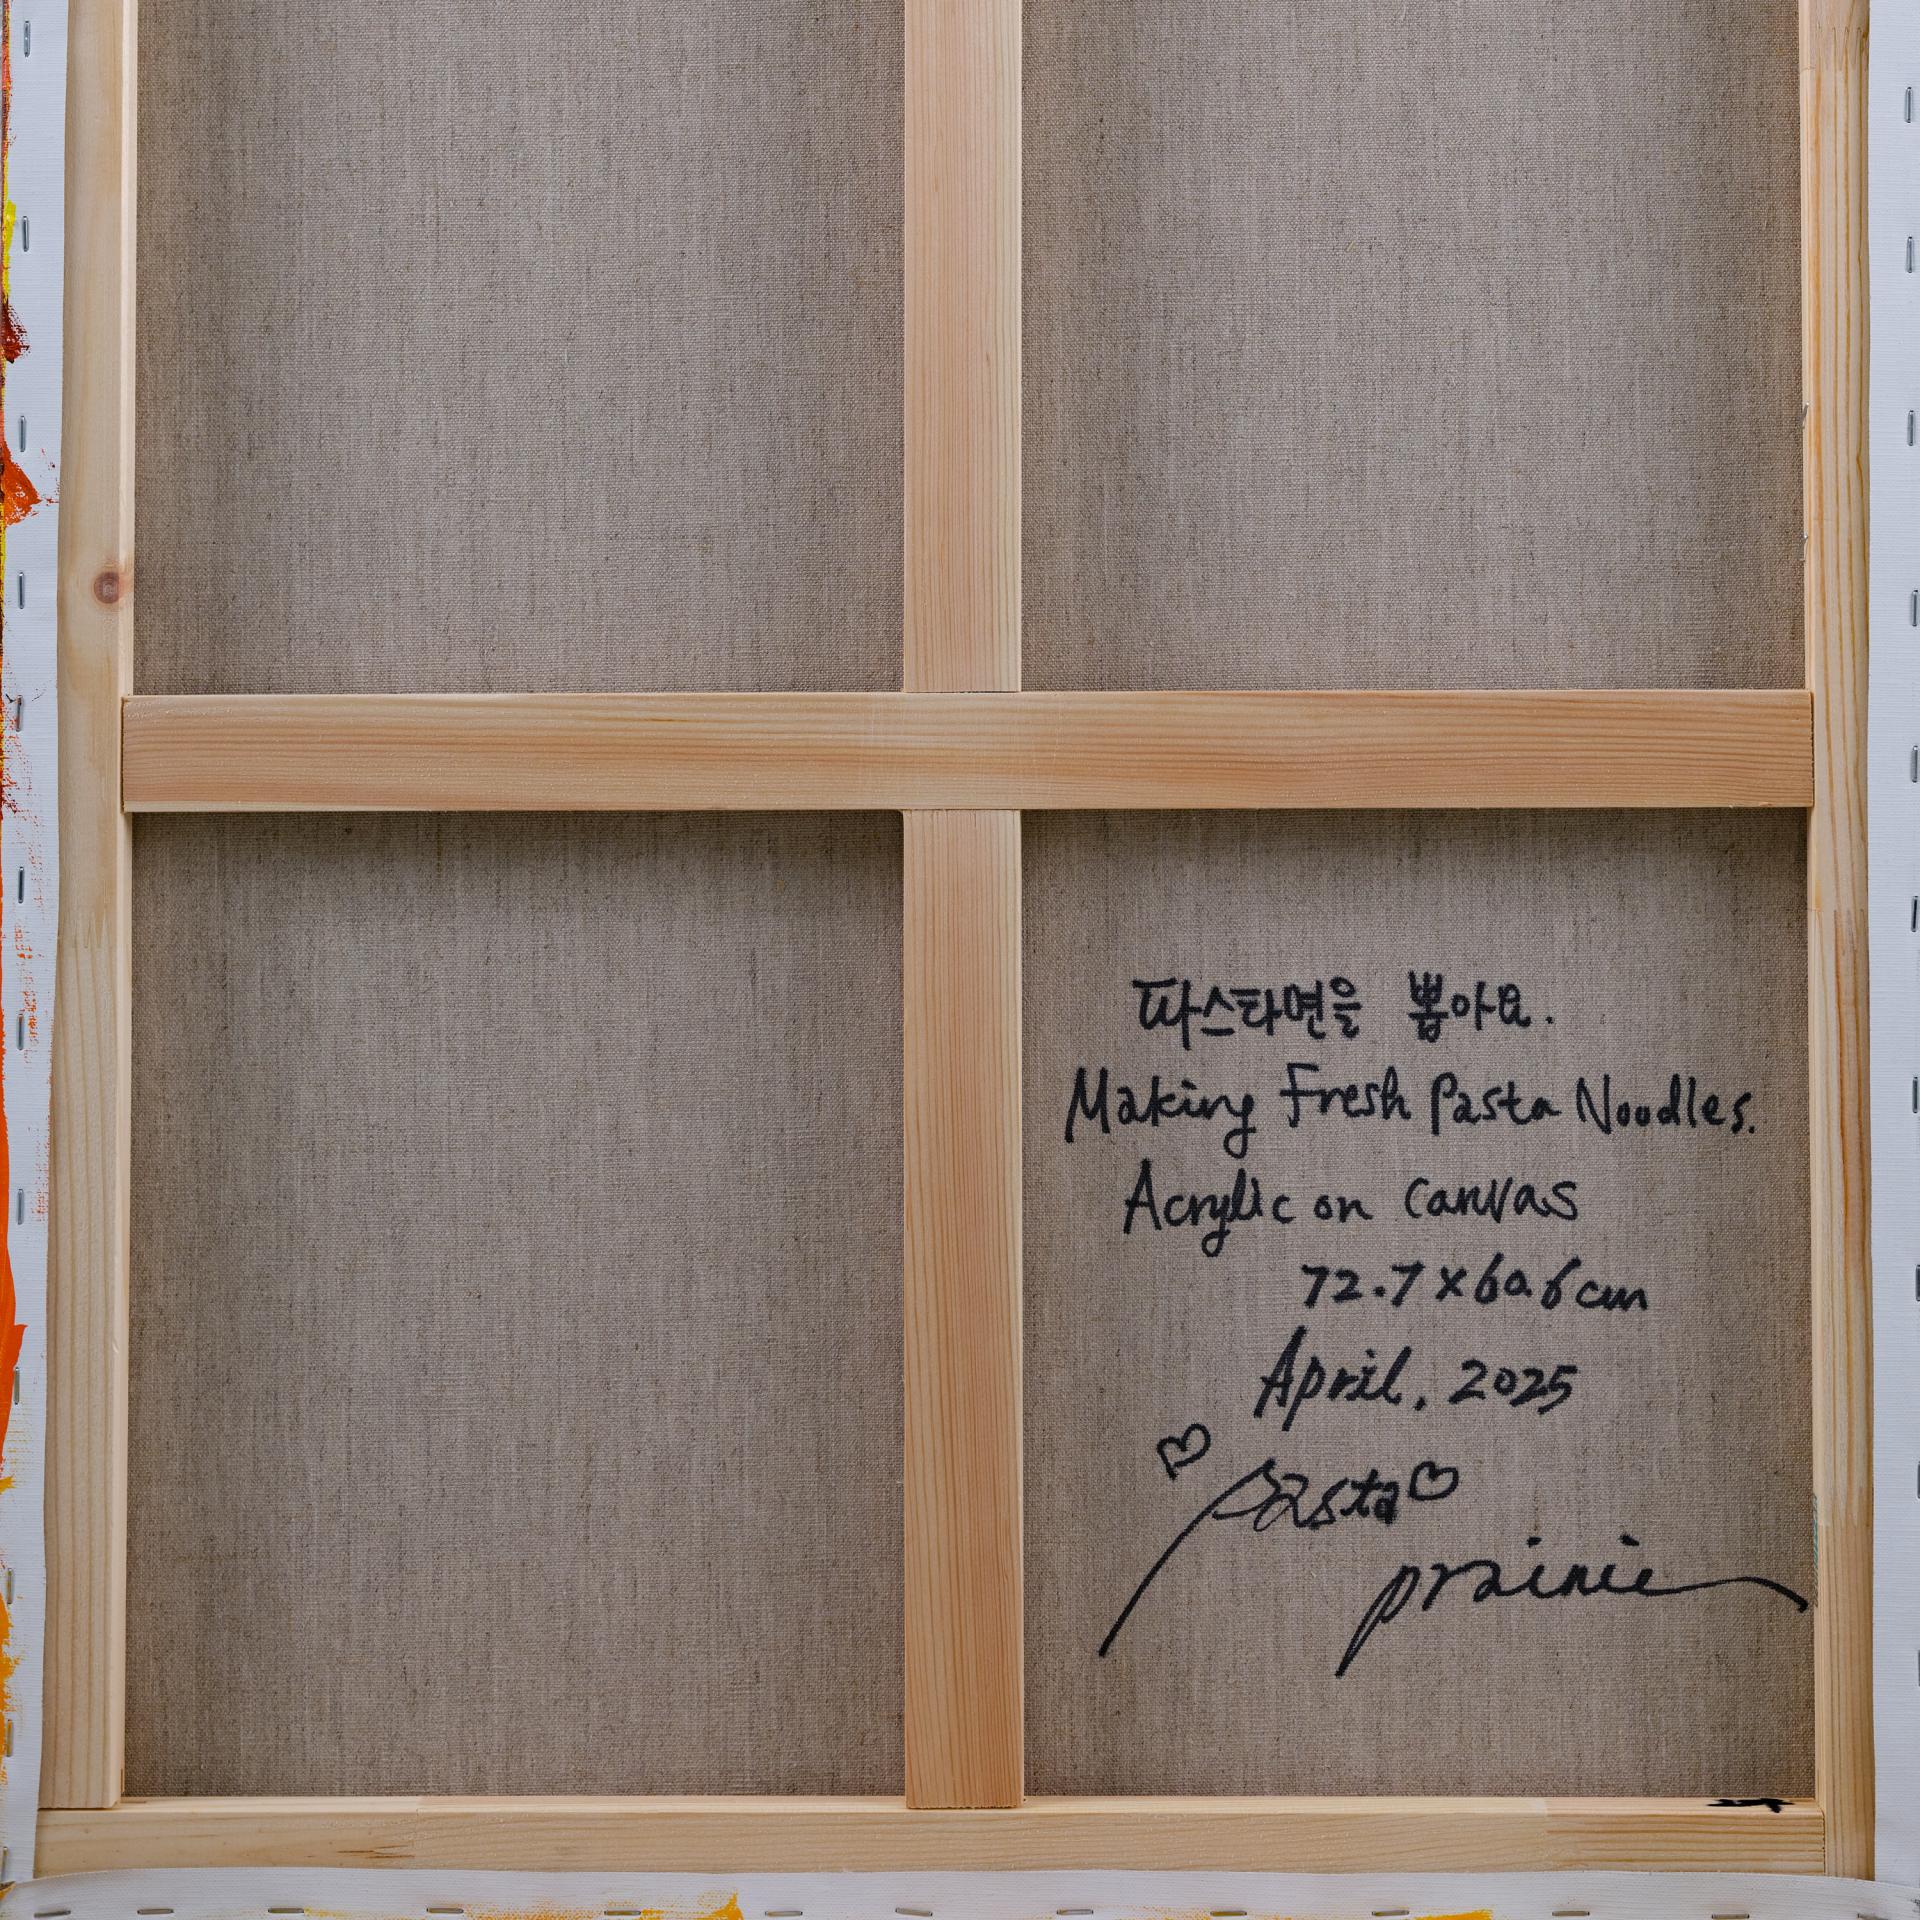 파스타면을 뽑아요.
Making Fresh Pasta Noodles.
Acrylic on canvas
72.7 x 60.6 cm
April. 2025
♡ Pasta ♡
prairie